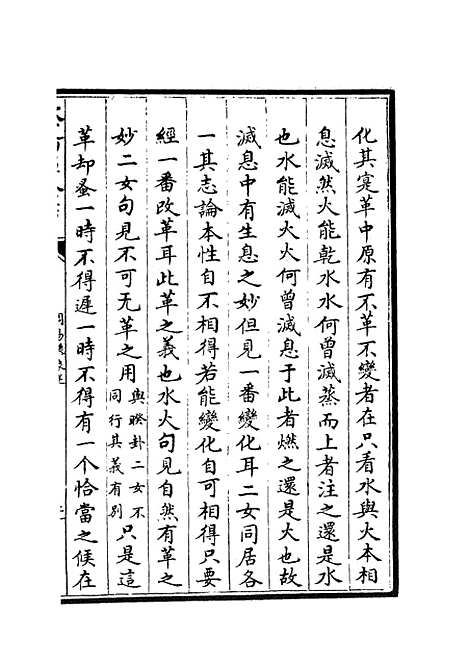 化其寔革中原有不革不變者在只看水與火本相
息滅然火能乾水水何曾滅蒸而上者注之還是水
也水能滅火火何曾滅息于此者燃之還是火也故
滅息中有生息之妙但見一番變化耳二女同居各
一其志論本性自不相得若能變化自可相得只要
經一番改革耳此革之義也水火句見自然有革之
妙二女句見不可无革之用與睽卦二女不同行其義有別只是這
革却蚤一時不得遲一時不得有一个恰當之候在